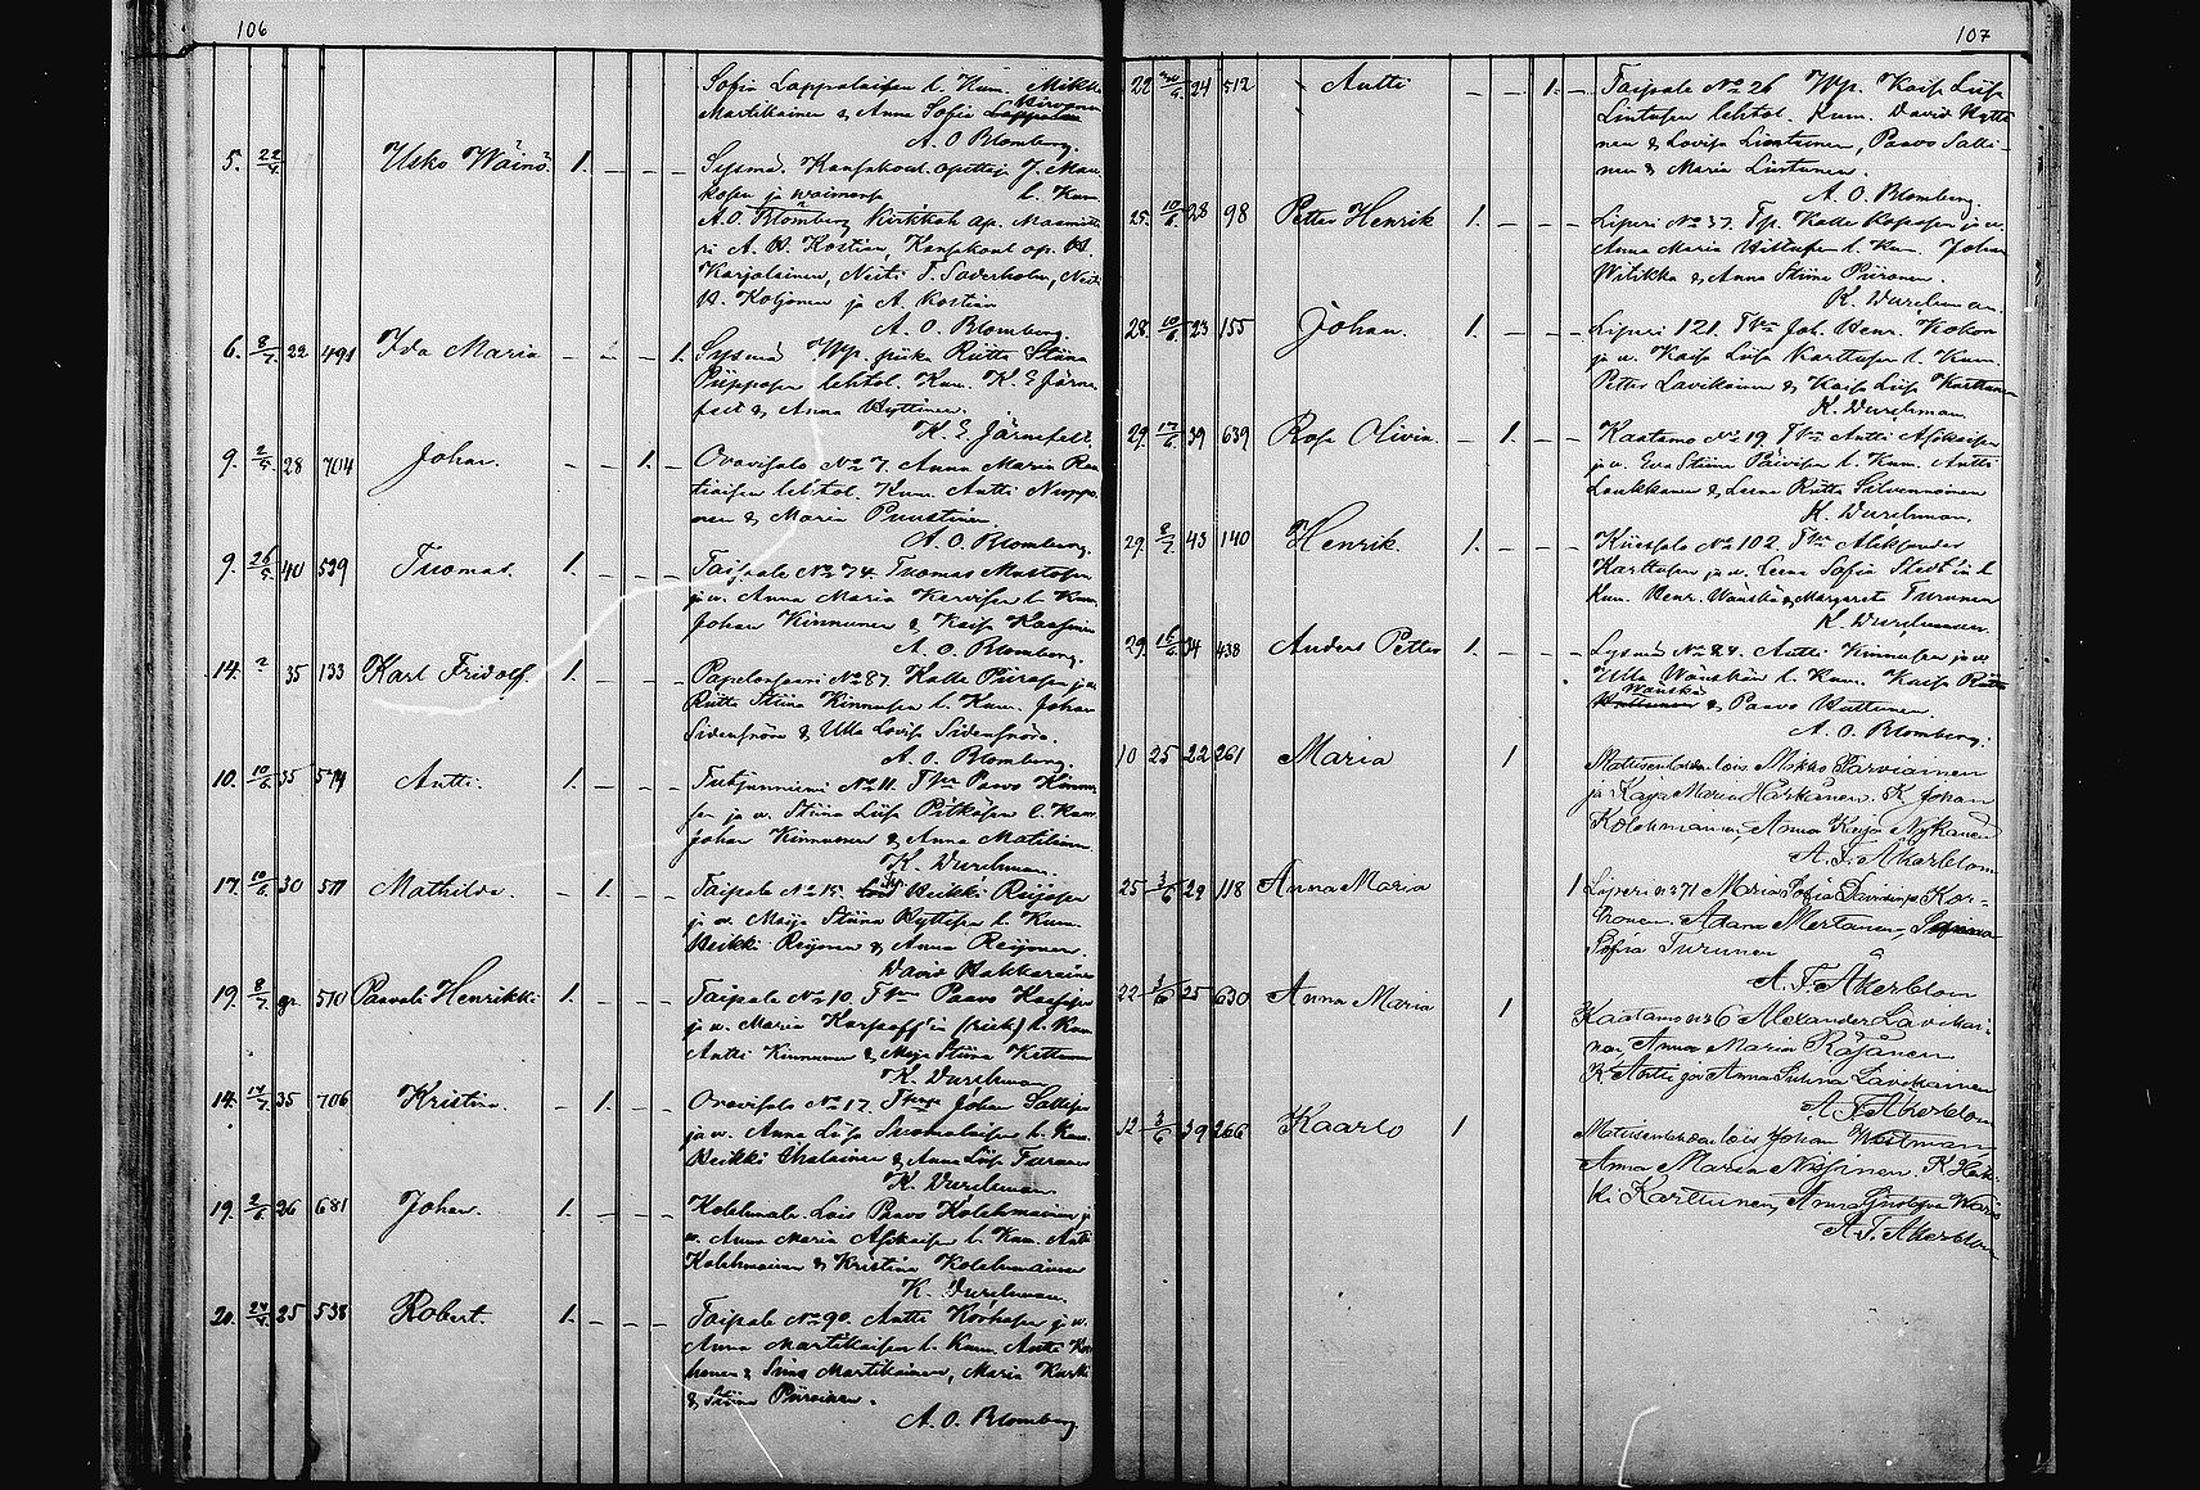 106
Sofia Lappalaisen l. Kum. Mikko
Hirvonen
Martikainen & Anna Sofia Lappalai
A. O. Blomberg.
5. 22/4. Usko Wäinö. 1. — — — Sysmä. Kansakoul. opettaja J. Man
kosen ja waimonsa l. Kum.
A. O. Blomberg Kirkkoh ap. Maamitta
ri A. W. Kostian, Kansakoul op. H.
Karjalainen, Neiti F. Soderholm, Neiti
H. Koljonen ja A. Kostian
A. O. Blomberg.
6. 8/7. 22 491 Ida Maria — — — 1. Sysmä Wp. piika Riitta Stiina
Piipposen lehtol. Kum. K. E. Järne
felt & Anna Hyttinen.
K. E. Järnefelt.
9. 2/5. 28 704 Johan. — — 1. — Oravisalo No 7. Anna Maria Raa
tiaisen lehtol. Kum. Antti Nuppo
nen & Maria Puustinen.
A. O. Blomberg.
9. 26/5. 40 539 Tuomas. 1. — — — Taipale No 74. Tuomas Mustosen
ja w. Anna Maria Kervisen l. Kum.
Johan Kinnunen & Kaisa Kaasinen
A. O. Blomberg.
14. ? 35 133 Karl Fridolf. 1. — — — Papelonsaari No 87. Kalle Piirosen ja w.
Riitta Stiina Kinnusen l. Kum. Johan
Sidensnöre & Ulla Lovisa Sidensnöre.
A. O. Blomberg.
10. 10/6. 35 574 Antti. 1. — — — Tutjunniemi No 11. Paavo Kinnu
sen ja w. Stiina Liisa Pitkäsen l. Kum.
Johan Kinnunen & Anna Matilainen
K. Durchman.
17. 10/6. 30 511 Mathilda. — 1. — — Taipale No 15. Heikki Reijosen
ja w. Maija Stiina Hyttisen l. Kum.
Heikki Reijonen & Anna Reijonen.
David Hakkarainen
19. 8/7. 510 Paavali Henrikki 1. — — — Taipale No 10. Paavo Kaasisen
ja w. Maria l. Kum
Antti Kinnunen & Maija Stiina
K. Durchman
14. 14/7. 35 706 Kristina. — 1. — — Oravisalo No 17. Johan Sallisen
ja w. Anna Liisa Suomalaisen l. Kum.
Heikki Ihalainen & Anna Liisa Turunen
K. Durchman
19. 2/6. 26 681 Johan. 1. — — — Kolehmala. Lois Paavo Kolehmainen ja
w. Anna Maria Asikaisen l. Kum. Antti
Kolehmainen & Kristina Kolehmainen
K. Durchman.
20. 24/4. 25 538 Robert. 1. — — — Taipale No 90. Antti Korhosen ja w.
Anna Martikaisen l. Kum. Antti Kor
honen & Simo Martikainen, Maria Kurki
& Stiina Piiroinen.
A. O. Blomberg.
107
22 24 512 Antti — — 1. — Taipale No 26 Wp. Kaisa Liisa
Lintusen lehtol. Kum. David Hytti
nen & Lovisa Lintunen, Paavo Salli
nen & Maria Lintunen.
A. O. Blomberg.
25. 10/6. 28 98 Petter Henrik 1. — — — Liperi No 37. Tp. Kalle Koposen ja w.
Anna Maria l. Kum. Johan
Witikka & Anna Stiina Piironen.
K. Durchman.
28. 10/6. 23 155 Johan. 1. — — — Liperi 121. Joh. Henr. Kokon
ja w. Kaisa Liisa Karttusen l. Kum.
Petter Lavikainen & Kaisa Liisa Karttunen
K. Durchman.
29. 17/6. 39 639 Rosa Olivia. — 1. — — Kaatamo No 19. Antti Asikaisen
ja w. Eva Stiina Päivisen l. Kum. Antti
Loukkanen & Leena Riitta Silvennoinen
K. Durchman.
29. 8/7. 43 140 Henrik. 1. — — — Kiiessalo No 102. Aleksander
Karttusen ja w. Leena Sofia l.
Kum. Henr. Wänskä & Margareta Turunen
K. Durchman.
29. 34 438 Anders Petter 1. — — — Sysmä No 24. Antti Kinnusen ja w.
Ulla Wänskän l. Kum. Kaisa Riitta
Wänskä
Huttunen & Paavo Huttunen.
A. O. Blomberg.
10 25 22 261 Maria 1 Mattisenlahden lois. Mikko Parviainen
ja Kaija Maria Härkänen. K. Johan
Kolehmainen, Anna Kaija Nykänen
A. F. Åkerblom
25 3/6 29 118 Anna Maria 1 Liperi No 71 Maria Sofia Davidintr. Kor-
honen. Adam Mertanen,
Sofia Turunen
A. F. Åkerblom
22 3/6 25 630 Anna Maria 1 Kaatamo No 6 Alexander Lavikai-
nen, Anna Maria Räsänen
K. Antti ja Anna Lavikainen
A. F. Åkerblom
12 3/6 39 266 Kaarlo 1 Mattisenlahden lois Johan Westman,
Anna Maria Nissinen. K. Heik-
ki Karttunen, Anna
A. F. Åkerblom